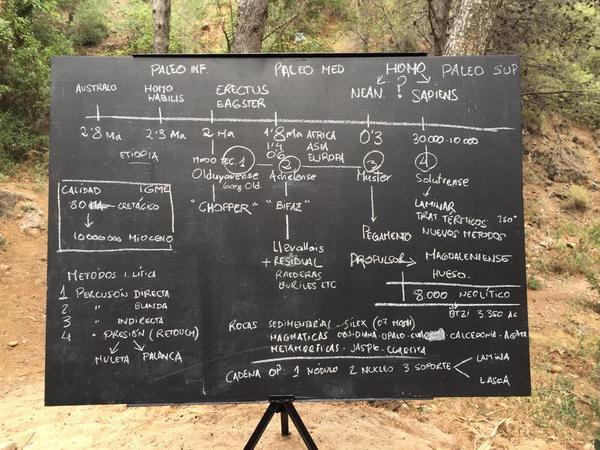 PALEO INF. PALEO MED HOMO PALEO SUP
?
AUSTRALO HOMO HABILIS ERECTUS EAGSTER NEAN. SAPIENS
2'8 Ma 2'3 Ma 2 Ma 1'8 Ma AFRICA 0'3 30.000-10.000
1'4 ASIA
EUROPA
ETIOPIA
MODO TEC. 1 2 3 4
Olduvayense Achelense Muster Solutrense
"CHOPPER" "BIFAZ"
LAMINAR
TRAT TÉRMICOS 250°
NUEVOS METODOS
PEGAMENTO
PROPULSOR MAGDALENIENSE
HUESO.
Llevallois
+ RESIDUAL
RAEDERAS
BURILES ETC
8.000 NEOLÍTICO
3.350 AC
CALIDAD IGME
80 Ma CRETÁCICO
10000000 MIOCENO
METODOS I. LÍTICA
1 PERCUSIÓN DIRECTA
2 " BLANDA
3 " INDIRECTA
4 - PRESIÓN (RETOUCH)
MULETA PALANCA
ROCAS SEDIMENTARIAS - SILEX (07 MOSH)
MAGMATICAS OBSIDIANA-OPALO - CALCEDONIA - AGATA
METAMORFICAS - JASPE - CUARCITA
CADENA OP: 1 NODULO 2 NUCLEO 3 SOPORTE LAMINA
LASCA